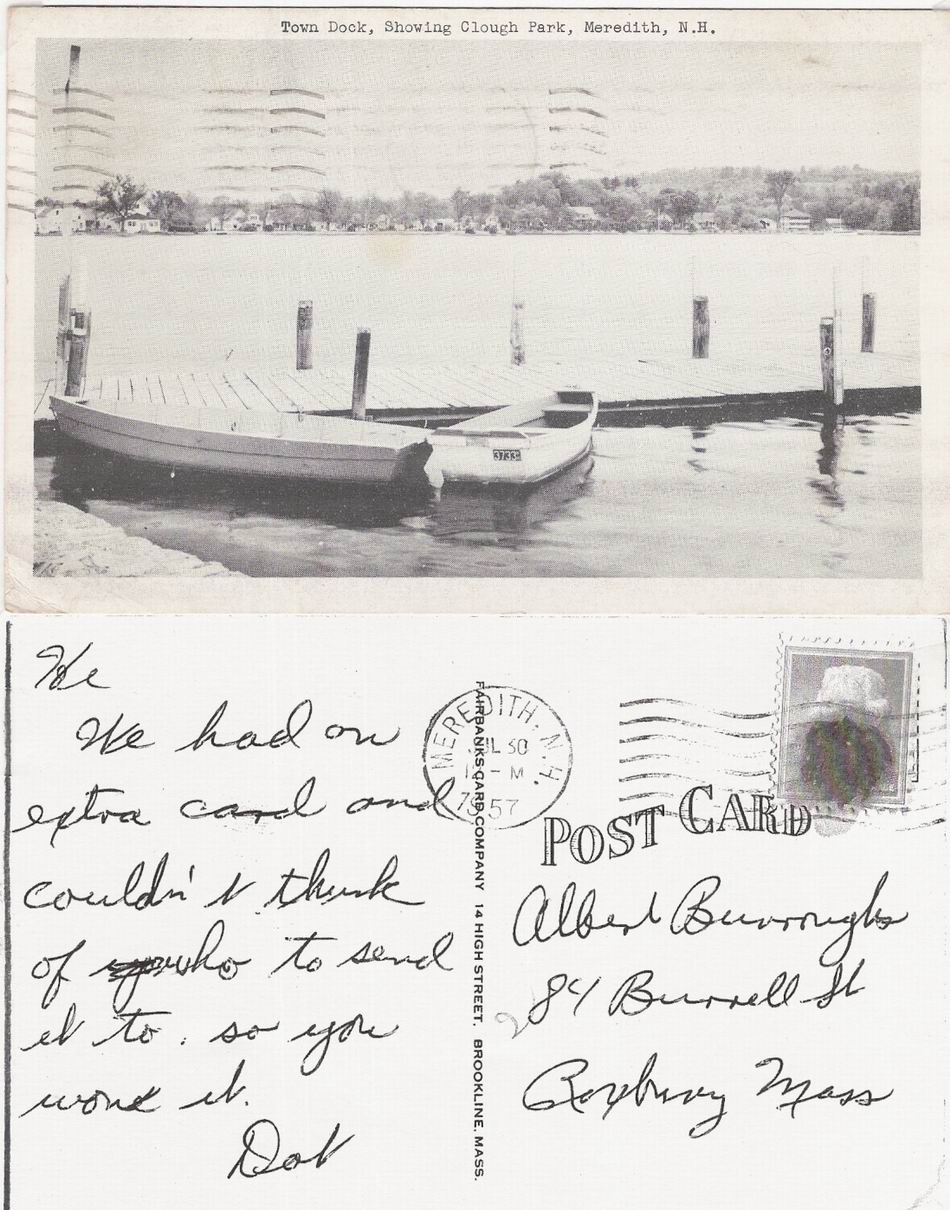 Town Dock, Showing Clough Park, Meredith, N.H.
3733
We had an
extra card and
couldn't think
of who to send
it to. so you
wond it.
Dot
FAIRBANKS CARD COMPANY 14 HIGH STREET. BROOKLINE, MASS.
MEREDITH. N.H.
JUL 30
- M
1957
POST CARD
Albert Burroughs
84 Burrell St
Roxbury Mass